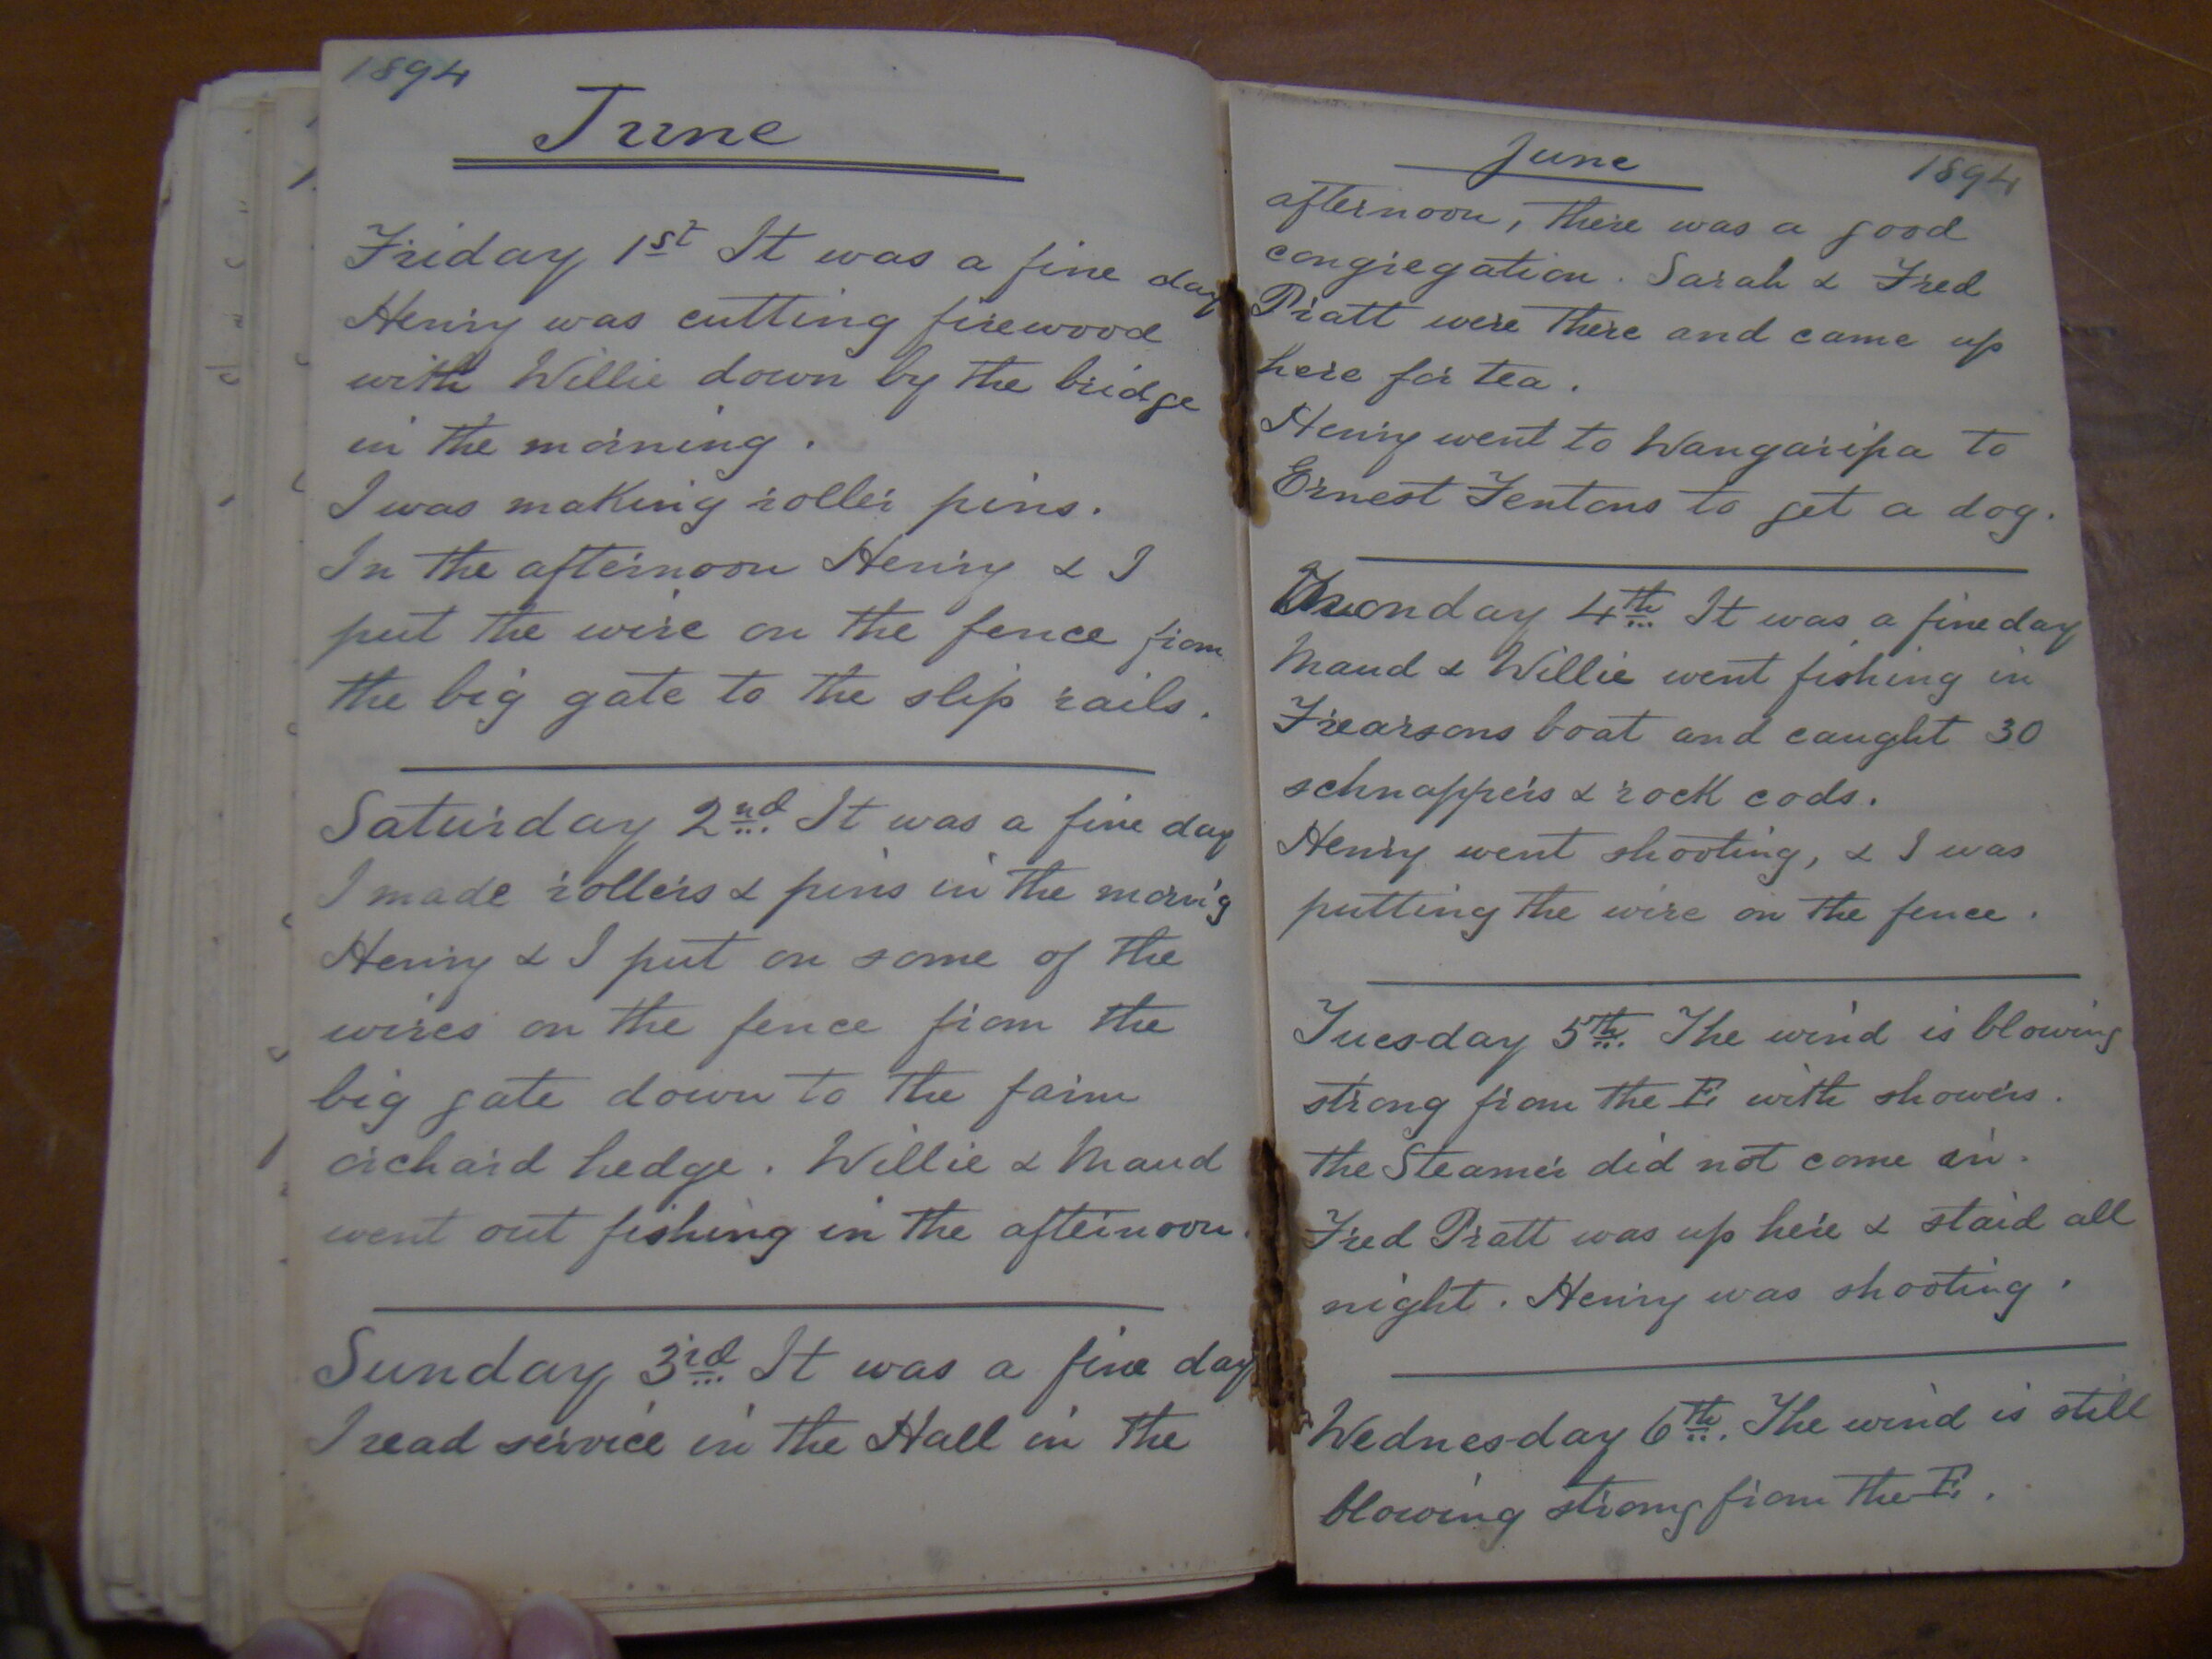 1894
June
Friday 1st It was a fine day
Henry was cutting firewood
with Willie down by the bridge
in the morning.
I was making roller pins.
In the afternoon Henry & I
put the wire on the fence from
the big gate to the slip rails.
Saturday 2nd It was a fine day
I made rollers & pins in the morn'g
Henry & I put on some of the
wires on the fence from the
big gate down to the farm
orchard hedge. Willie & Maud
went out fishing in the afternoon.
Sunday 3rd It was a fine day
I read service in the Hall in the
June 1894
afternoon, there was a good
congregation. Sarah & Fred
Pratt were there and came up
here for tea.
Henry went to Wangaripa to
Ernest Fentons to get a dog.
Monday 4th It was a fine day
Maud & Willie went fishing in
Frearsons boat and caught 30
schnappers & rock cods.
Henry went shooting, & I was
putting the wire on the fence.
Tuesday 5th. The wind is blowing
strong from the E with showers.
the Steamer did not come in.
Fred Pratt was up here & staid all
night. Henry was shooting.
Wednesday 6th. The wind is still
blowing strong from the E.